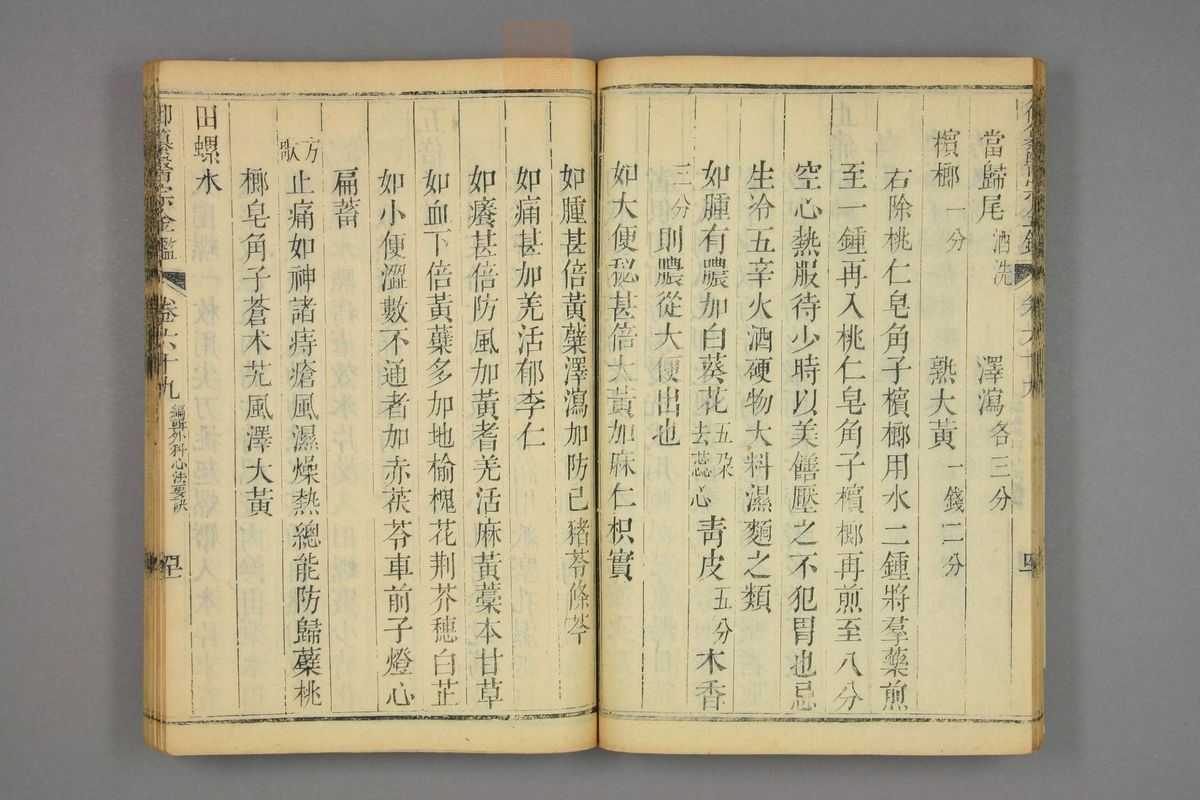 當歸尾酒洗 澤瀉各三分
檳榔一分 熟大黃一錢二分
右除桃仁皂角子檳榔用水二鍾將羣藥煎
至一鍾再入桃仁皂角子檳榔再煎至八分
空心熱服待少時以美饍壓之不犯胃也忌
生冷五辛火酒硬物大料濕麵之類
如腫有膿加白葵花五朶去蕊心青皮五分木香
三分則膿從大便出也
如大便秘甚倍大黃加麻仁枳實
如腫甚倍黃蘗澤瀉加防己豬苓條芩
如痛甚加羌活郁李仁
如癢甚倍防風加黃耆羌活麻黃藁本甘草
如血下倍黃蘗多加地榆槐花荆芥穗白芷
如小便澀數不通者加赤茯苓車前子燈心
扁蓄
方歌
止痛如神諸痔瘡風濕燥熱總能防歸蘗桃
榔皂角子蒼朮艽風澤大黃
田螺水
御纂醫宗金鑑 卷六十九 編輯外科心法要訣